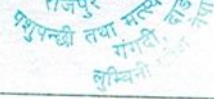 राजपुर
पशुपन्छी तथा मत्स्य
गंगदी, दाङ
लुम्बिनी